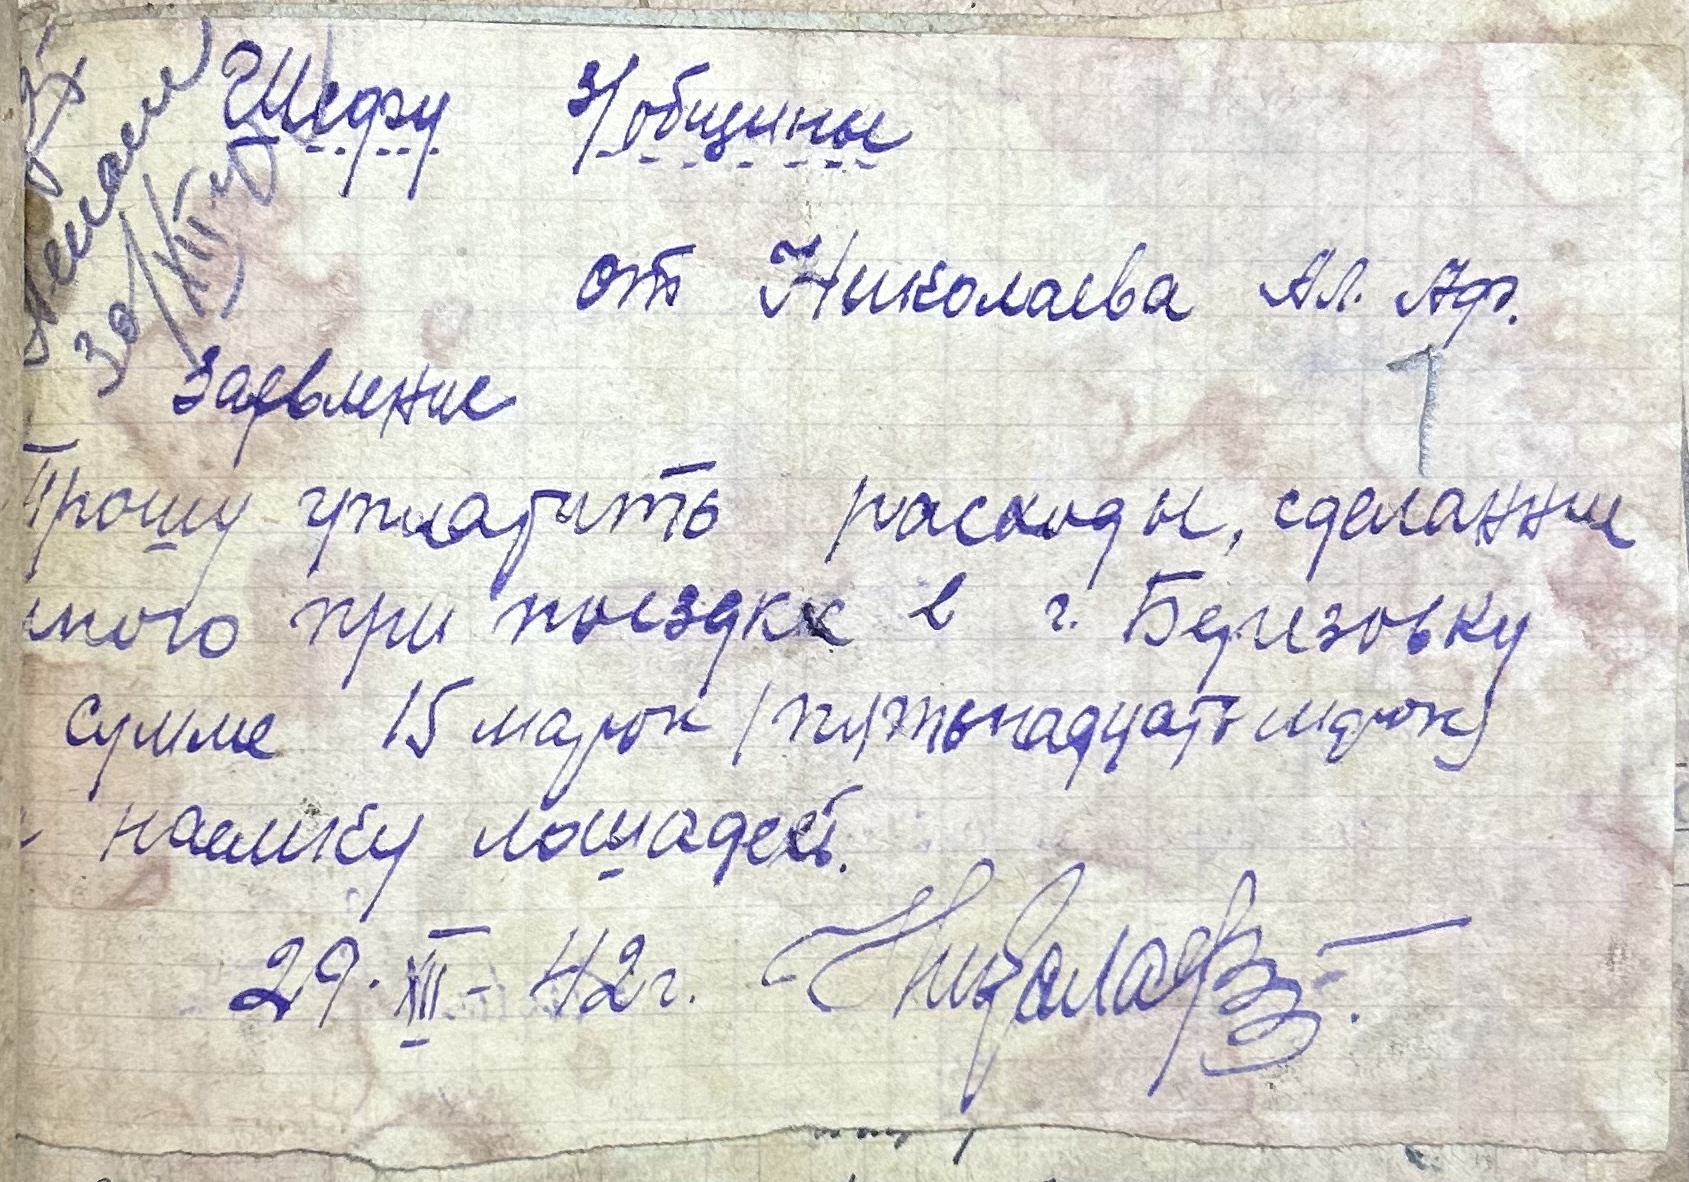 Шефу з/общины
от Николаева Ал. Аф.
1
Заявление
Прошу уплатить расходы, сделанные
мною при поездке в г. Березовку
сумме 15 марок (пятьнадцать марок)
наемку лошадей.
29. XII - 42 г. Николаев
30/XII 42